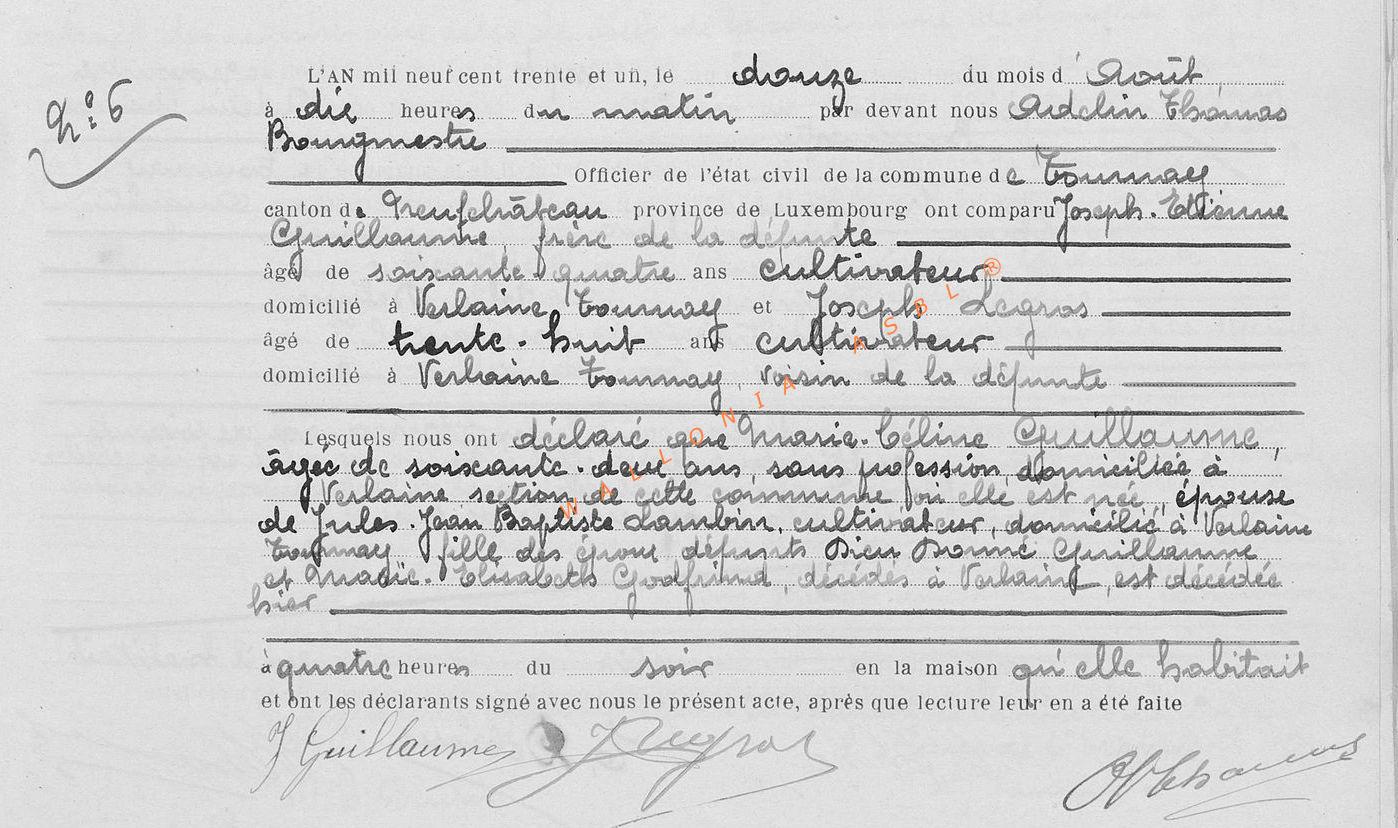 L'AN mil neuf cent trente et un, le douze du mois d'Août
N° 6
à dix heures du matin par devant nous Adelin Thomas
Bourgmestre
Officier de l'état civil de la commune de Tournay
canton de Neufchâteau province de Luxembourg ont comparu Joseph-Etienne
Guillaume, frère de la défunte
âgé de soixante-quatre ans cultivateur
domicilié à Verlaine Tournay et Joseph Legros
âgé de trente-huit ans cultivateur
domicilié à Verlaine Tournay, voisin de la défunte
Lesquels nous ont déclaré que Marie-Céline Guillaume,
âgée de soixante-deux ans, sans profession, domiciliée à
Verlaine section de cette commune où elle est née, épouse
de Jules-Jean Baptiste Lambin, cultivateur, domicilié à Verlaine
Tournay fille des époux défunts Dieu Donné Guillaume
et Marie-Elisabeth Godfrind, décédés à Verlaine, est décédée
hier
à quatre heures du soir en la maison qu'elle habitait
et ont les déclarants signé avec nous le présent acte, après que lecture leur en a été faite
J Guillaume J Legros A Thomas
WALLONIA ASBL®